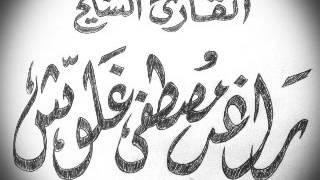 القارئ الشيخ
راغب مصطفى غلوش